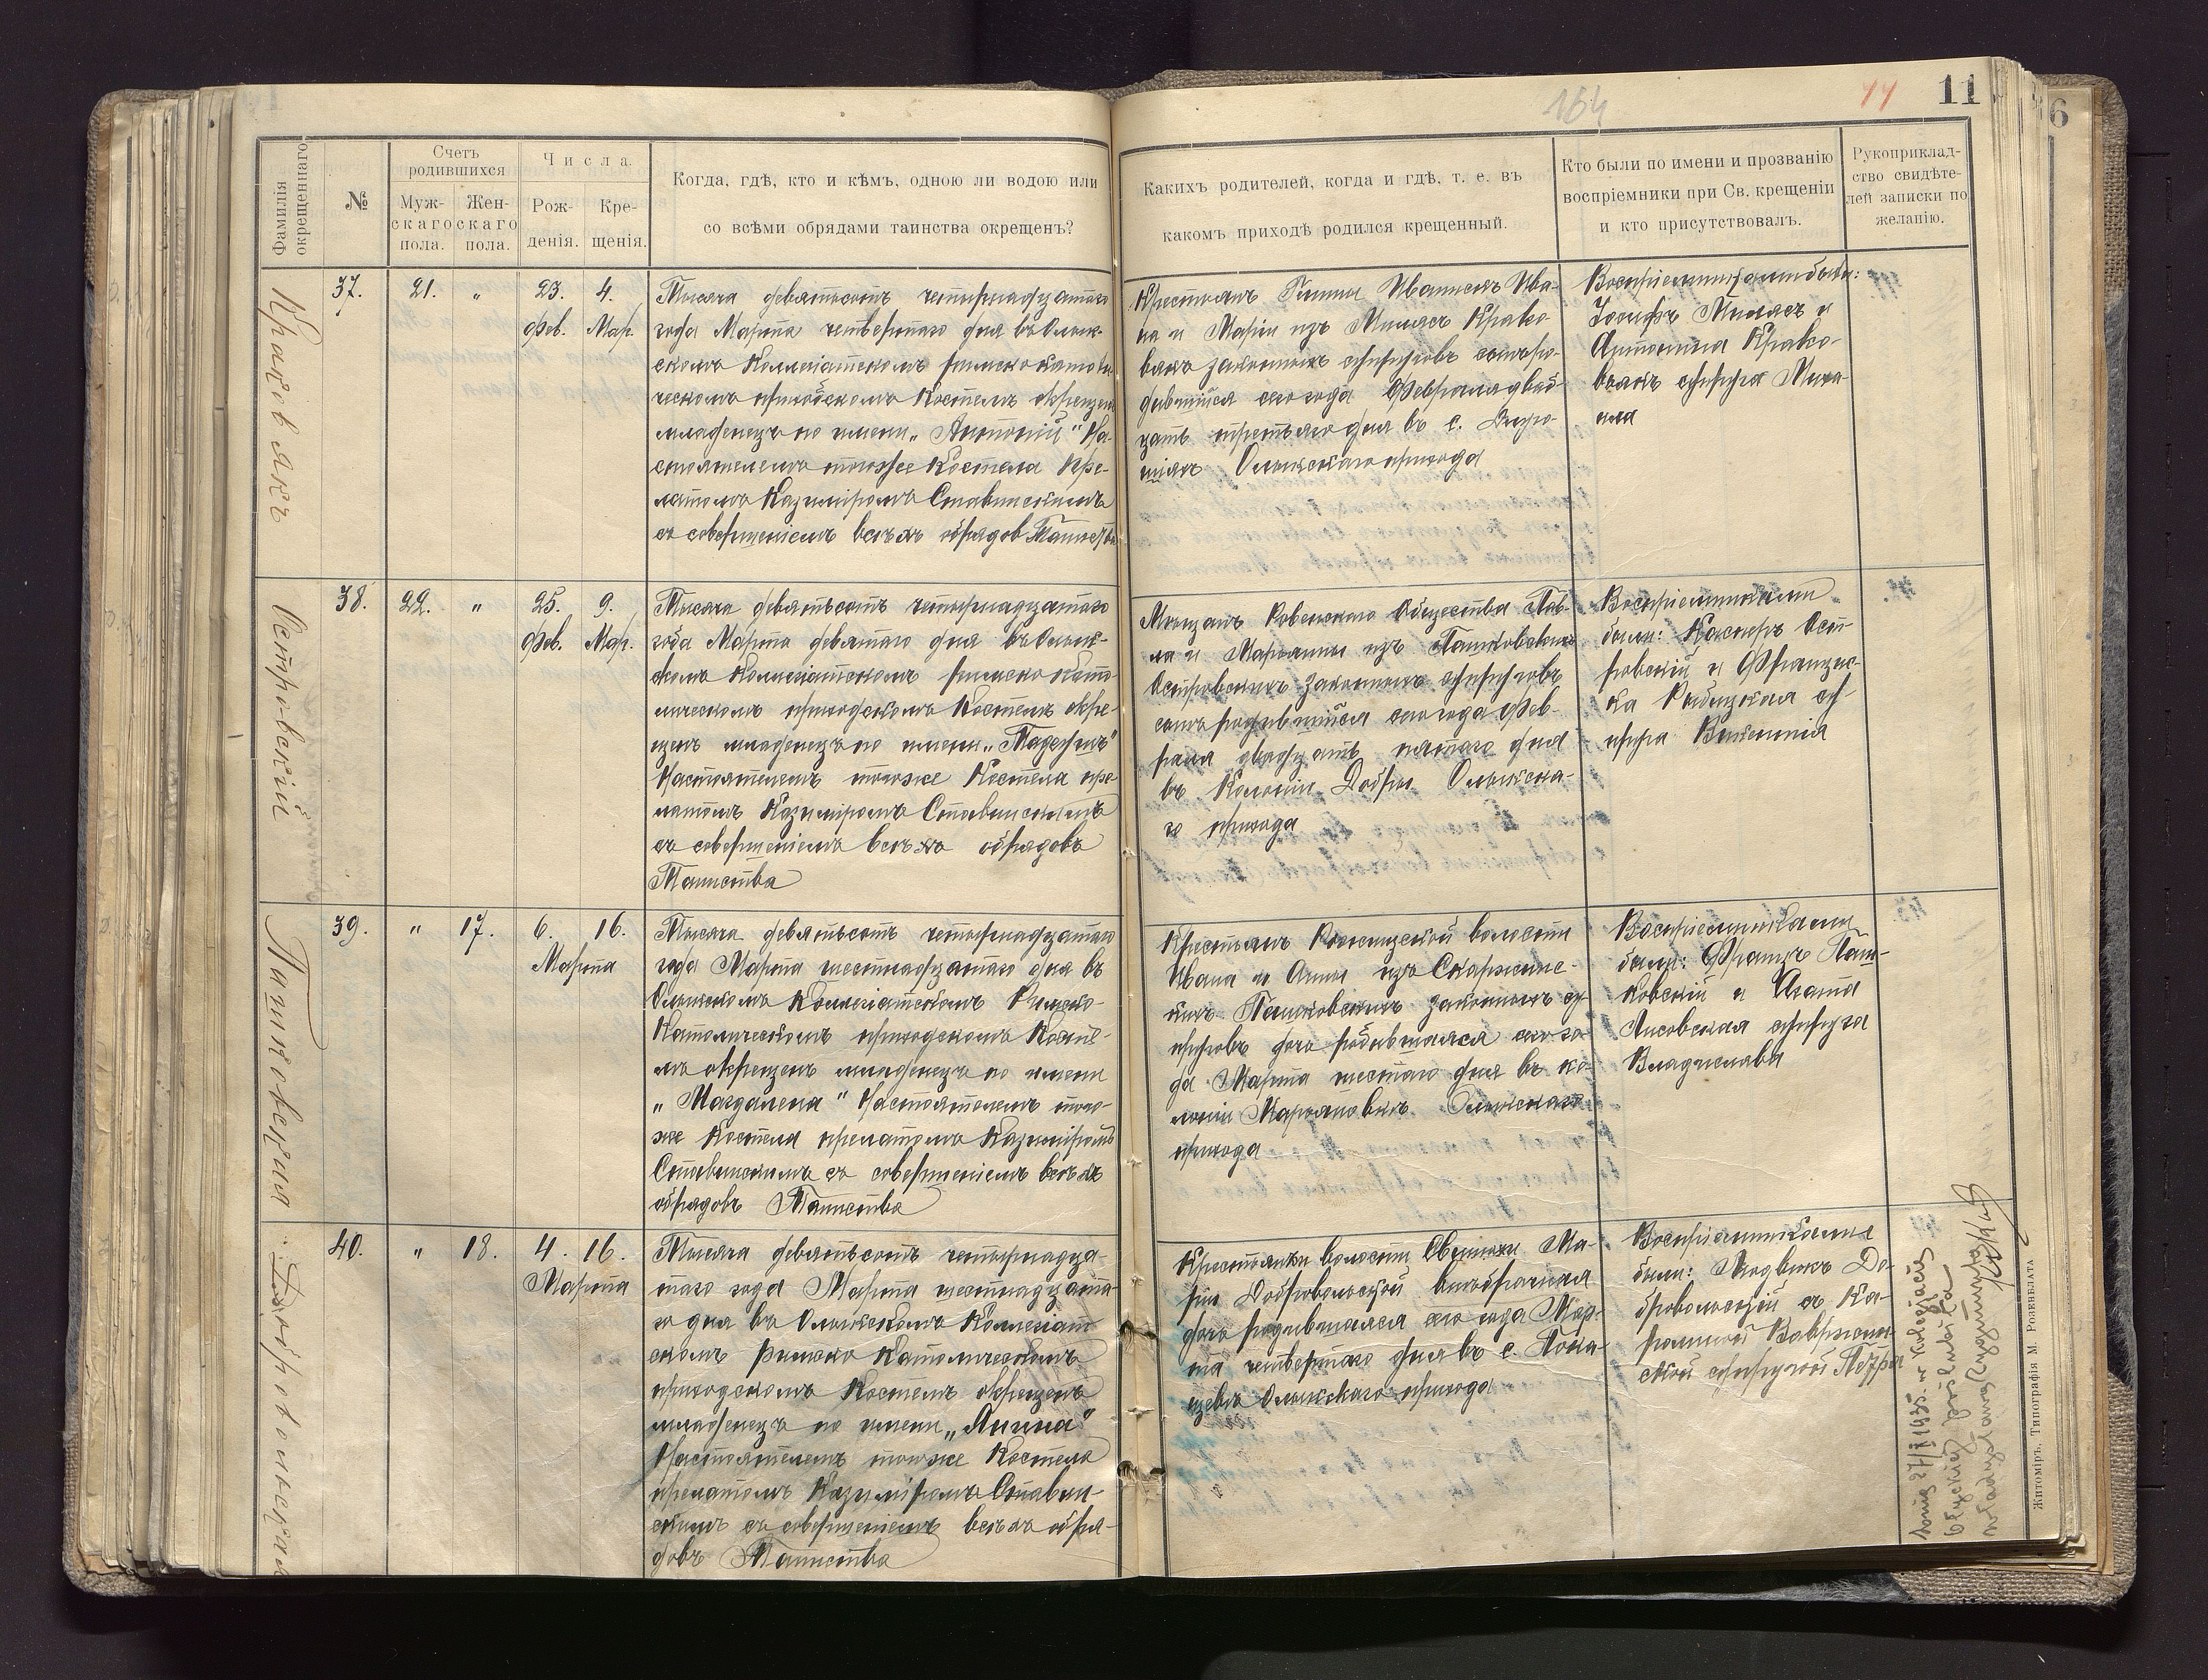 164
11
11
6
Фамилія
окрещеннаго
№
Счетъ
родившихся
Муж-
скаго
пола.
Жен-
скаго
пола.
Числа.
Рож-
денія.
Кре-
щенія.
Когда, гдѣ, кто и кѣмъ, одною ли водою или
со всѣми обрядами таинства окрещенъ?
Какихъ родителей, когда и гдѣ, т. е. въ
какомъ приходѣ родился крещенный.
Кто были по имени и прозванію
воспріемники при Св. крещеніи
и кто присутствовалъ.
Рукоприклад-
ство свидѣте-
лей записки по
желанію.
Краковякъ
37.
21.
"
23.
Фев.
4.
Мар.
Тысяча девятьсотъ четырнадцатаго
года Марта четвертаго дня въ Олык-
скомъ Коллегіатскомъ римско католи
ческомъ приходскомъ Костелѣ окрещен
младенецъ по имени „Антоній" На-
стоятелемъ того же Костела Пре-
латомъ Казиміромъ Ставинскимъ
съ совершеніемъ всѣхъ обрядов Таинства
Крестьянъ Ивана
на и Маріи изъ Милясъ Крако-
вякъ законныхъ супруговъ сынъ ро-
дившійся сего года Февраля двад-
цать третьяго дня въ с.
Олыкскаго прихода
Воспріемниками были:
Іосифъ Милясъ и
Антонина Крако-
вякъ супруга Миха-
ила
Островскій
38.
22.
"
25.
Фев.
9.
Мар.
Тысяча девятьсотъ четырнадцатаго
года Марта девятаго дня въ Олык-
скомъ Коллегіатскомъ римско Като-
лическомъ приходскомъ Костелѣ окре-
щенъ младенецъ по имени „Тадеушъ"
Настоятелемъ того же Костела пре-
латомъ Казиміромъ Ставинскимъ
съ совершеніемъ всѣхъ обрядовъ
Таинства
Мѣщанъ Ровенскаго Общества Пав-
ла и Марьянны изъ Пашковскихъ
Островскихъ законныхъ супруговъ
сынъ родившійся сего года Фев-
раля двадцать пятаго дня
въ Колоніи Добры Олыкска-
го прихода
Воспріемниками
были: Касперъ Ост-
ровскій и Францис-
ка Рыбицкая су-
пруга Викентія
Пашковская
39.
"
17.
6.
16.
Марта
Тысяча девятьсотъ четырнадцатаго
года Марта шестнадцатаго дня въ
Олыкскомъ Коллегіатскомъ Римско-
Католическомъ приходскомъ Косте-
лѣ окрещенъ младенецъ по имени
„Магдалена" Настоятелемъ того-
же Костела прелатомъ Казиміромъ
Ставинскимъ съ совершеніемъ всѣхъ
обрядовъ Таинства
Крестьянъ волости
Ивана и Анны изъ Скаржинс-
кихъ Пашковскихъ законныхъ су-
пруговъ дочь родившаяся сего го-
да Марта шестаго дня въ ко-
лоніи Марьяновкѣ Олыкскаго
прихода
Воспріемниками
были: Францъ Паш-
ковскій и Агата
Лисовская супруга
Владислава
Добровольская
40.
"
18.
4.
16.
Марта
Тысяча девятьсотъ четырнадца-
таго года Марта шестнадцата-
го дня въ Олыкскомъ Коллегіат
скомъ римско Католическомъ
приходскомъ Костелѣ окрещенъ
младенецъ по имени „Янина"
Настоятелемъ того же Костела
прелатомъ Казиміромъ Ставин-
скимъ съ совершеніемъ всѣхъ обря-
довъ Таинства
Крестьянки волости Ма-
ріи Добровольской внѣбрачная
дочь родившаяся сего года Мар-
та четвертаго дня въ с. Пока-
щевѣ Олыкскаго прихода
Воспріемниками
были: Людвикъ До-
бровольскій съ Ка-
ролиной
ской супругой Петра
27/7 1935. w
poślubiła
Władysława
Житомиръ. Типографія М. Розенблата